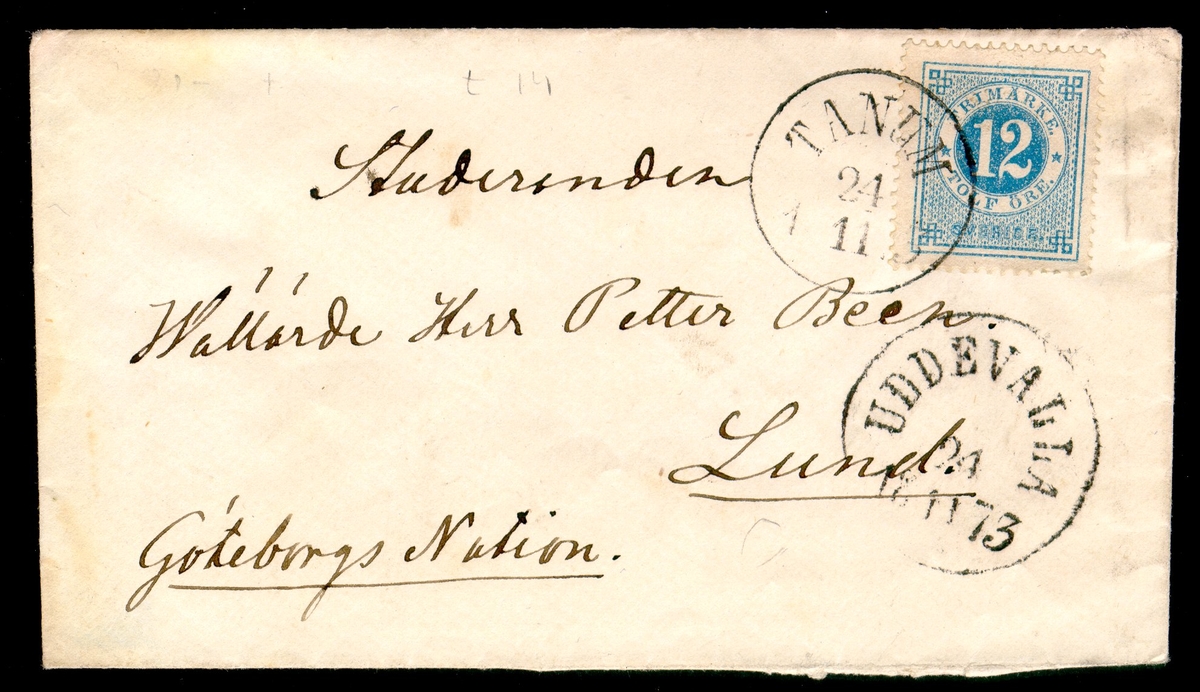 t 14
TANUM
24
11
FRIMÄRKE
12
TOLF ÖRE.
SVERIGE.
Studerenden
Wällärde Herr Petter Been.
UDDEVALLA
24
11
1873
Lund.
Göteborgs Nation.